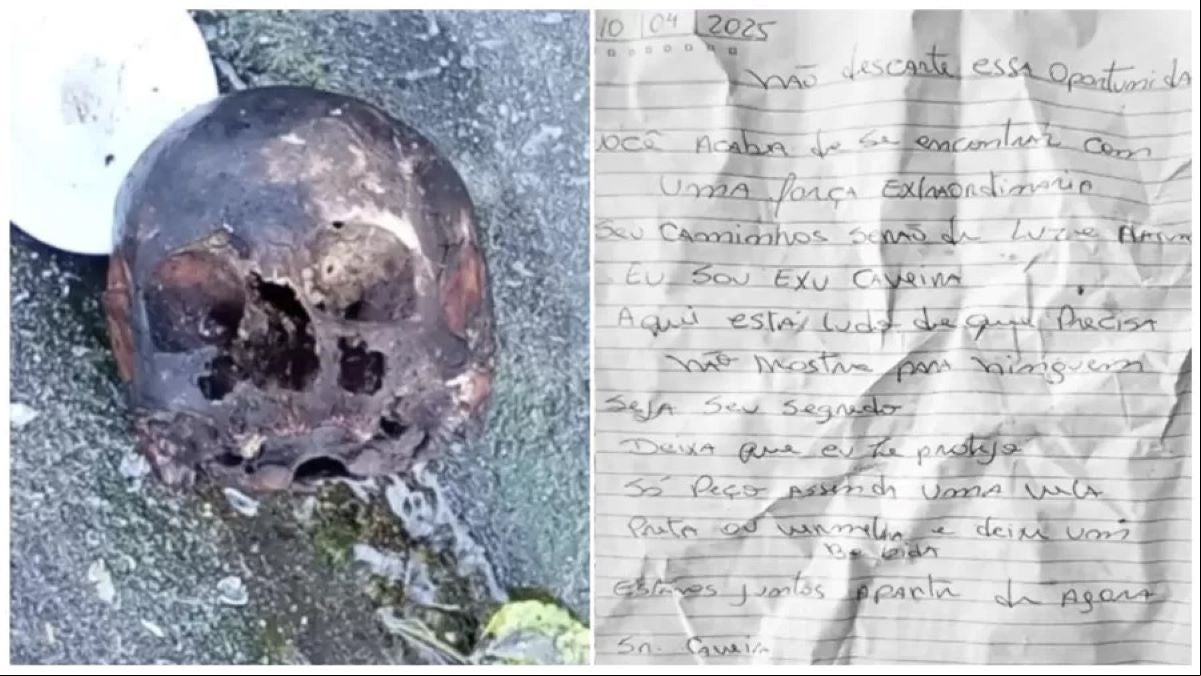 10 04 2025
não descarte essa Oportunida
você Acaba de se encontrar com
uma força Extraordinario
Seu Caminhos serão de Luz e
Eu Sou EXU CAVEIRA
Aqui está tudo de que Precisa
não Mostre para ninguem
Seja Seu Segredo
Deixa que eu te protejo
Só Peço Assenda uma vela
Preta ou vermelha e deixe um
Bebida
Estares juntos Apartir de Agora
Sr. Caveira